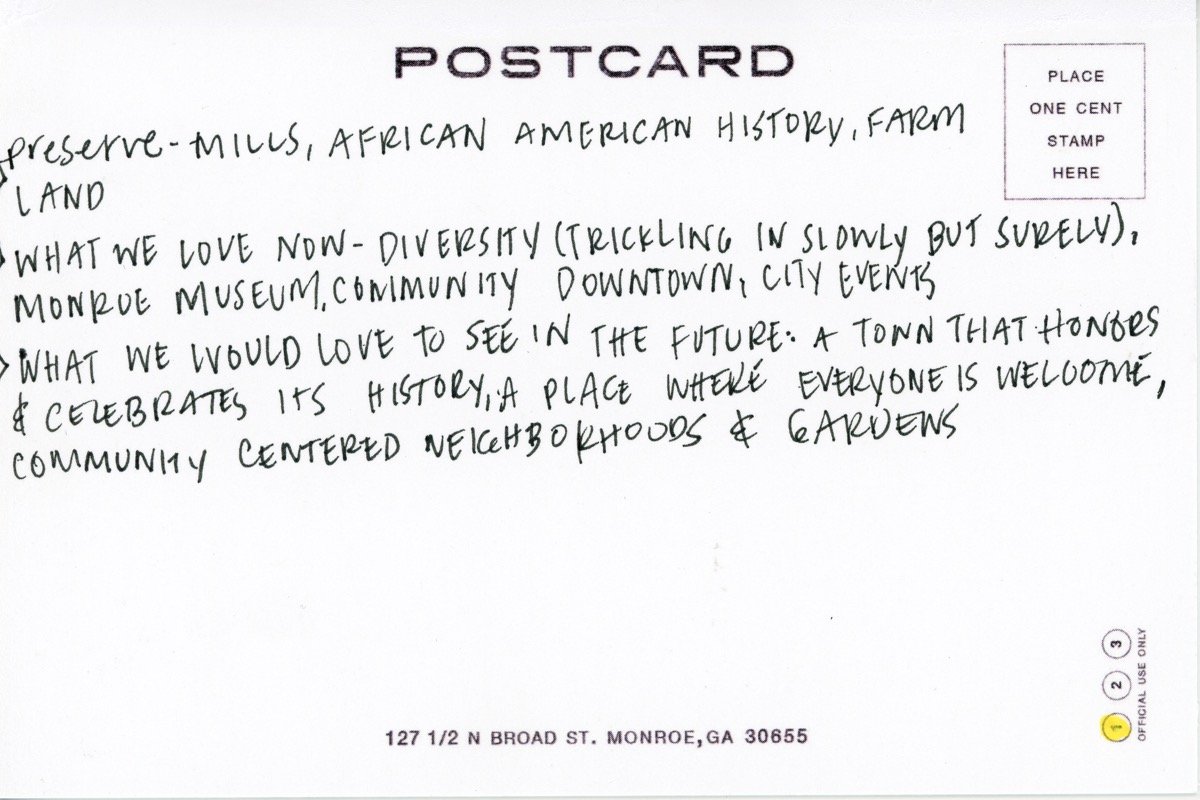 POSTCARD
PLACE
ONE CENT
STAMP
HERE
preserve - MILLS, AFRICAN AMERICAN HISTORY, FARM
LAND
WHAT WE LOVE NOW - DIVERSITY (TRICKLING IN SLOWLY BUT SURELY),
MONROE MUSEUM, COMMUNITY DOWNTOWN, CITY EVENTS
WHAT WE WOULD LOVE TO SEE IN THE FUTURE: A TOWN THAT HONORS
& CELEBRATES ITS HISTORY, A PLACE WHERE EVERYONE IS WELCOME,
COMMUNITY CENTERED NEIGHBORHOODS & GARDENS
1 2 3
OFFICIAL USE ONLY
127 1/2 N BROAD ST. MONROE, GA 30655